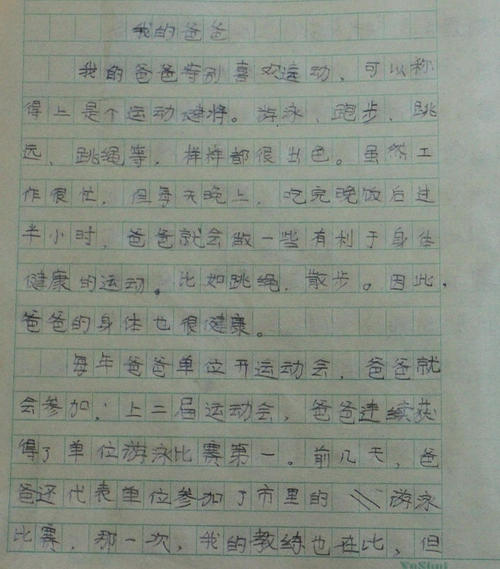 我的爸爸
我的爸爸特别喜欢运动，可以称
得上是个运动健将。游泳、跑步、跳
远、跳绳等，样样都很出色。虽然工
作很忙，但每天晚上，吃完晚饭后过
半小时，爸爸就会做一些有利于身体
健康的运动。比如跳绳，散步。因此，
爸爸的身体也很健康。
每年爸爸单位开运动会，爸爸就
会参加，上二届运动会，爸爸连续获
得了单位游泳比赛第一。前几天，爸
爸还代表单位参加了市里的游泳
比赛，那一次，我的教练也在比，但